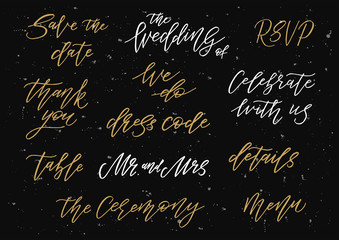 Save the
date
the
Wedding of
RSVP
thank
you
we
do
dress code
Celebrate
with us
table
Mr. and Mrs.
details
the Ceremony
menu